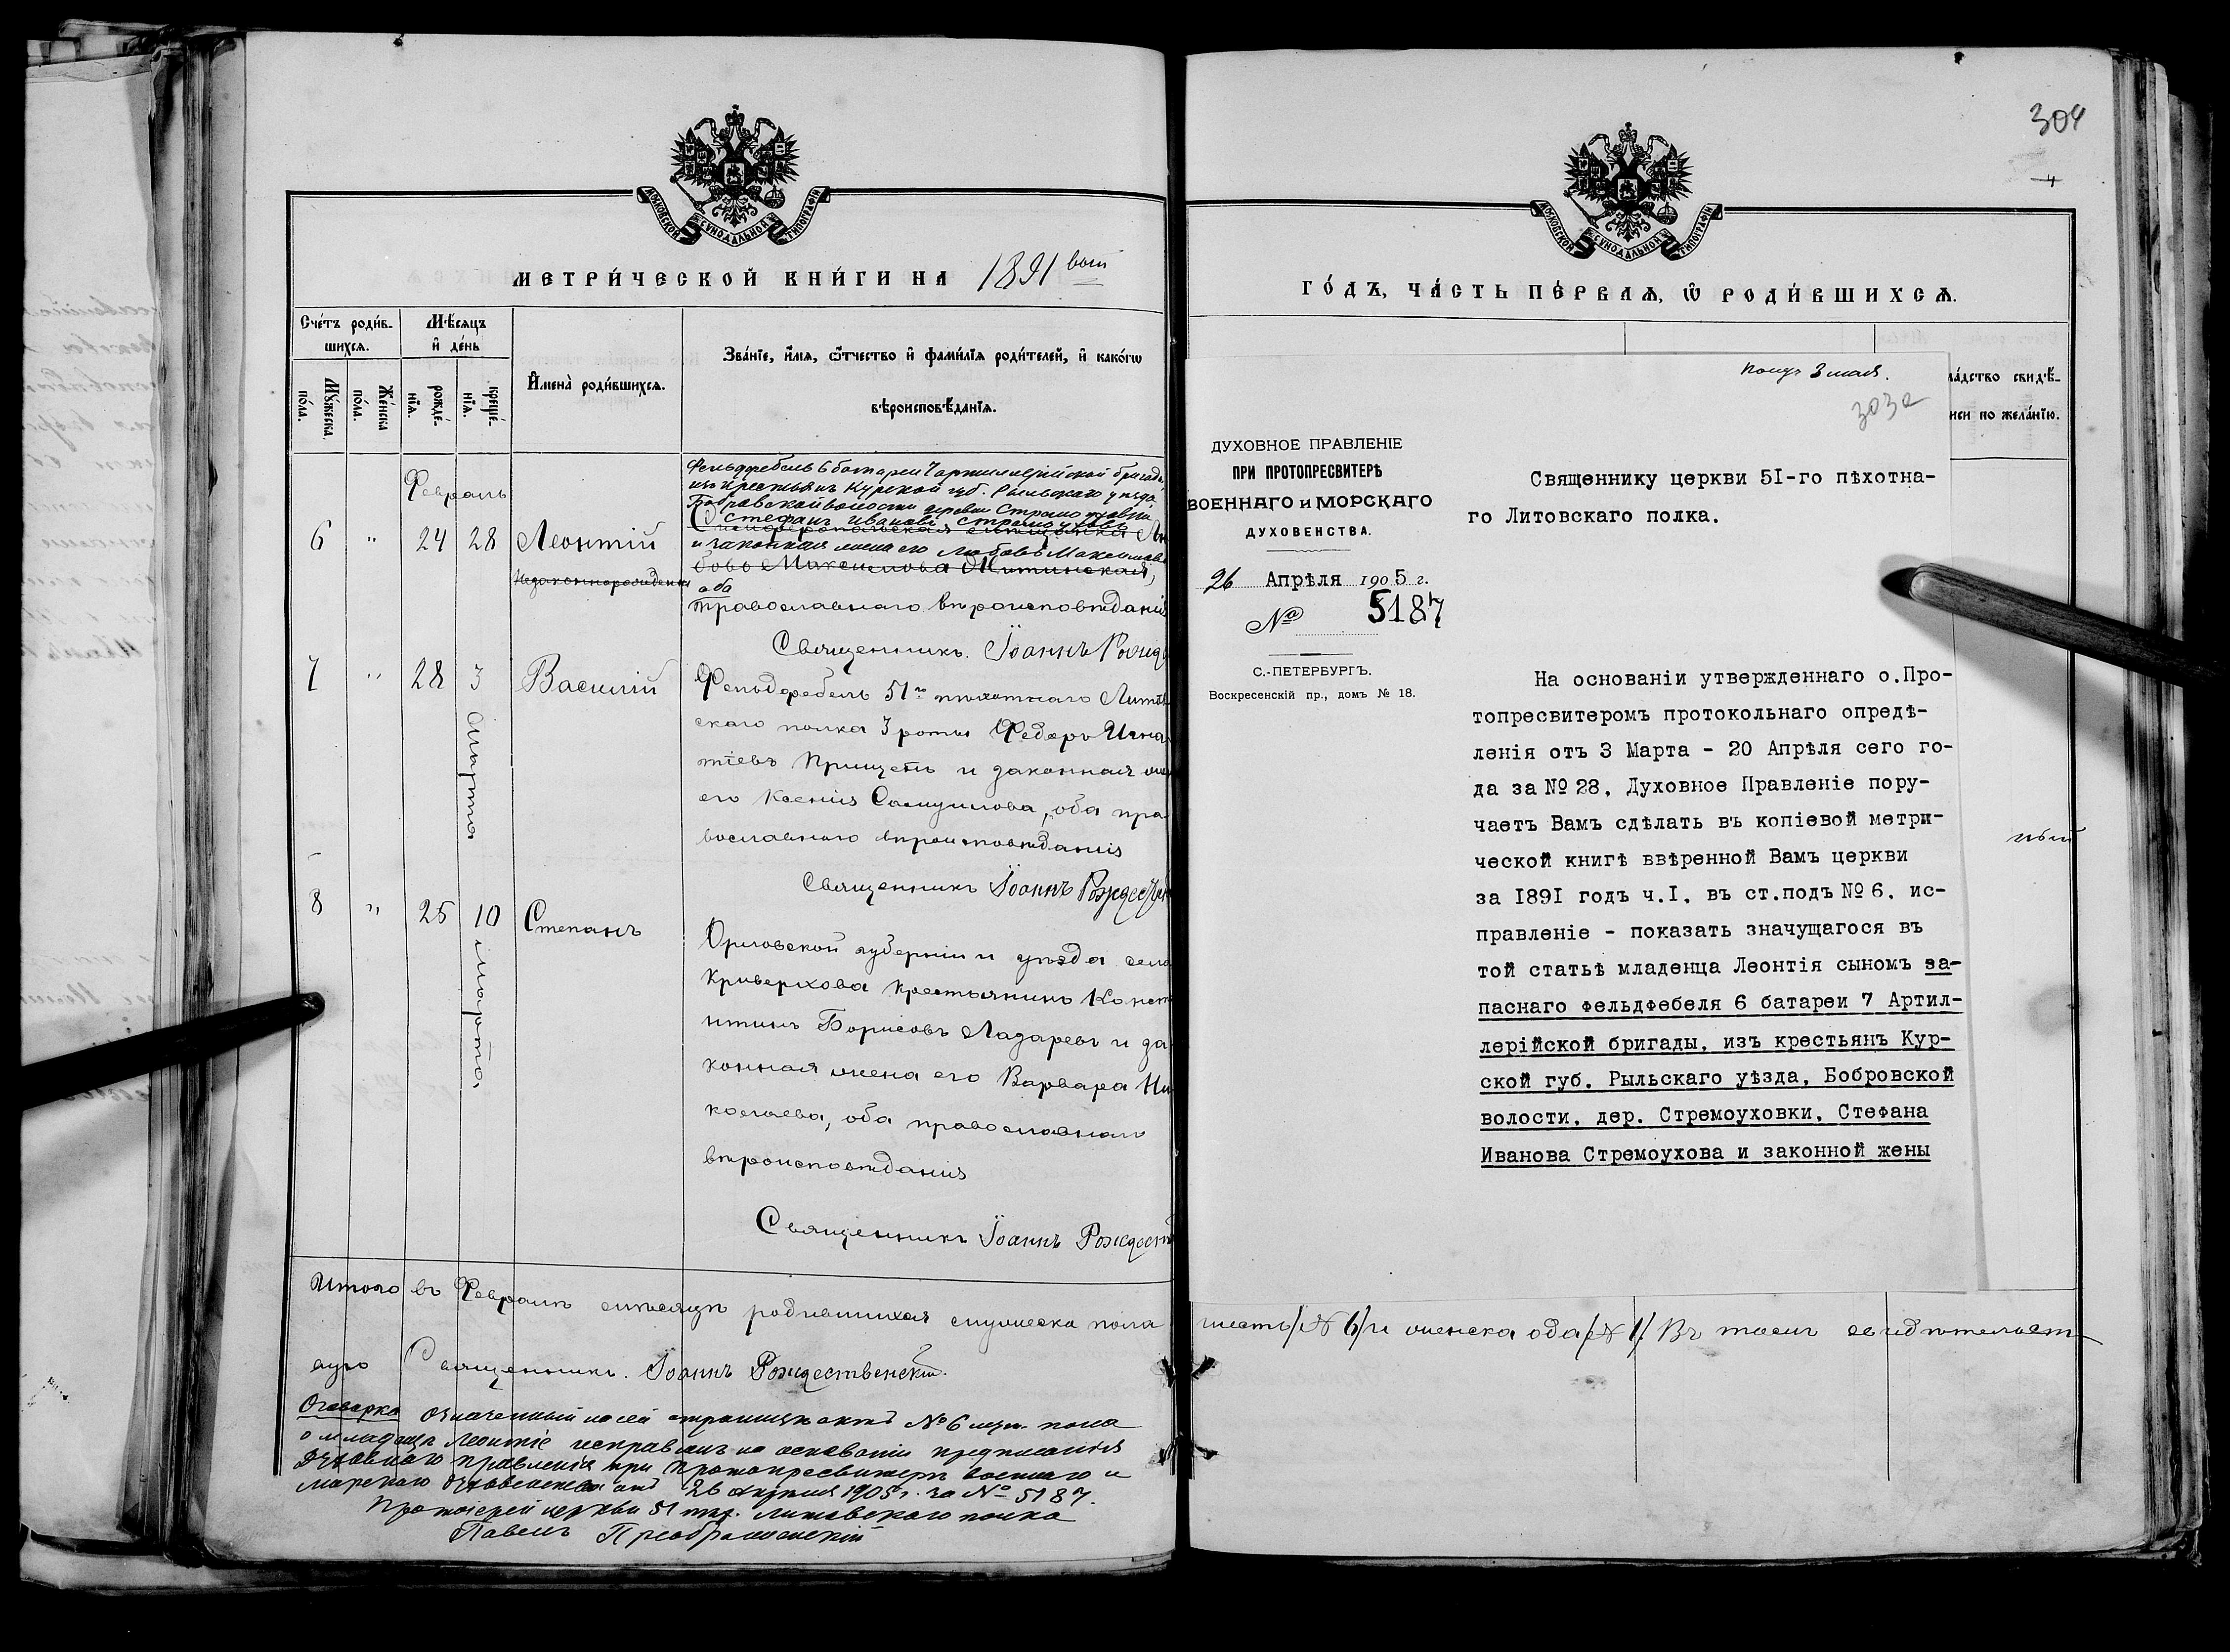 МОСКОВСКОЙ СУНОДАЛЬНОЙ ТИПОГРАФІИ
МЕТРИ́ЧЕСКОЙ КНИ́ГИ НА 1891
Сче́тъ роди́в-
шихсѧ.
Мѣ́сѧцъ
и҆ де́нь
Мꙋ́жеска
по́ла.
Же́нска
по́ла.
рожде́-
нїѧ.
креще́-
нїѧ.
И҆мена̀ роди́вшихсѧ.
Зва́нїе, и҆́мѧ, ѻ҆́тчество и҆ фами́лїѧ роди́телей, и҆ како́гѡ
вѣроисповѣ́данїѧ.
Февраль
Фельдфебель 6 батареи 7 артиллерійской бригады,
изъ крестьянъ Курской губ. Рыльскаго уѣзда
Бобровской волости деревни Стремоуховки
Стефанъ Ивановъ Стремоуховъ
6 " 24 28 Леонтій
и законная жена его Любовь Максимова
Незаконнорожденный
бовь Максимова
оба
православнаго вѣроисповѣданія
Священникъ. Іоаннъ
7 " 28 3 Марта Василій
Фельдфебель 51го пѣхотнаго Литов
скаго полка 3 роты Федоръ Игна
тіевъ Прищепъ и законная жен
его Ксенія Самуилова, оба пра
вославнаго вѣроисповѣданія
Священникъ Іоаннъ Рождествен
8 " 25 10 Марта Степанъ
Орловской губерніи и уѣзда села
Криверхова крестьянинъ Конст
нтинъ Борисовъ Лазаревъ и за
конная жена его Варвара Ни
колаева, оба православнаго
вѣроисповѣданія
Священникъ Іоаннъ Рождеств
Итого въ Февралѣ мѣсяцѣ родившихся мужеска пола
Священникъ. Іоаннъ Рождественскій.
Оговорка Означенный на сей страницѣ актъ № 6 муж. пола
о младенцѣ Леонтіе исправленъ на основаніи предписанія
Духовнаго Правленія при Протопресвитерѣ военнаго и
морского духовенства отъ 26 Апрѣля 1905 г. за № 5187.
Протоіерей церкви 51 пѣх. Литовскаго полка
Павелъ Преображенскій
304
4
МОСКОВСКОЙ СУНОДАЛЬНОЙ ТИПОГРАФІИ
ГО́ДЪ, ЧА́СТЬ ПЕ́РВАѦ, Ѡ҆ РОДИ́ВШИХСѦ.
ла́дство свидѣ́-
иси по жела́нїю.
Получ 3 мая.
303а
ДУХОВНОЕ ПРАВЛЕНІЕ
ПРИ ПРОТОПРЕСВИТЕРѢ
ВОЕННАГО и МОРСКАГО
ДУХОВЕНСТВА.
26 Апрѣля 1905 г.
№ 5187
С.-ПЕТЕРБУРГЪ.
Воскресенскій пр., домъ № 18.
Священнику церкви 51-го пѣхотна-
го Литовскаго полка.
На основаніи утвержденнаго о.Про-
топресвитеромъ протокольнаго опредѣ-
ленія отъ 3 Марта - 20 Апрѣля сего го-
да за № 28, Духовное Правленіе пору-
чаетъ Вамъ сдѣлать въ копіевой метри-
ческой книгѣ ввѣренной Вамъ церкви
за 1891 годъ ч.I. въ ст.подъ № 6. ис-
правленіе - показать значущагося въ
той статьѣ младенца Леонтія сыномъ за-
паснаго фельдфебеля 6 батареи 7 Артил-
лерійской бригады, изъ крестьянъ Кур-
ской губ. Рыльскаго уѣзда, Бобровской
волости, дер. Стремоуховки, Стефана
Иванова Стремоухова и законной жены
ный
шесть /№ 6/ и женска одна /№ 1/ Въ томъ свидѣтельст